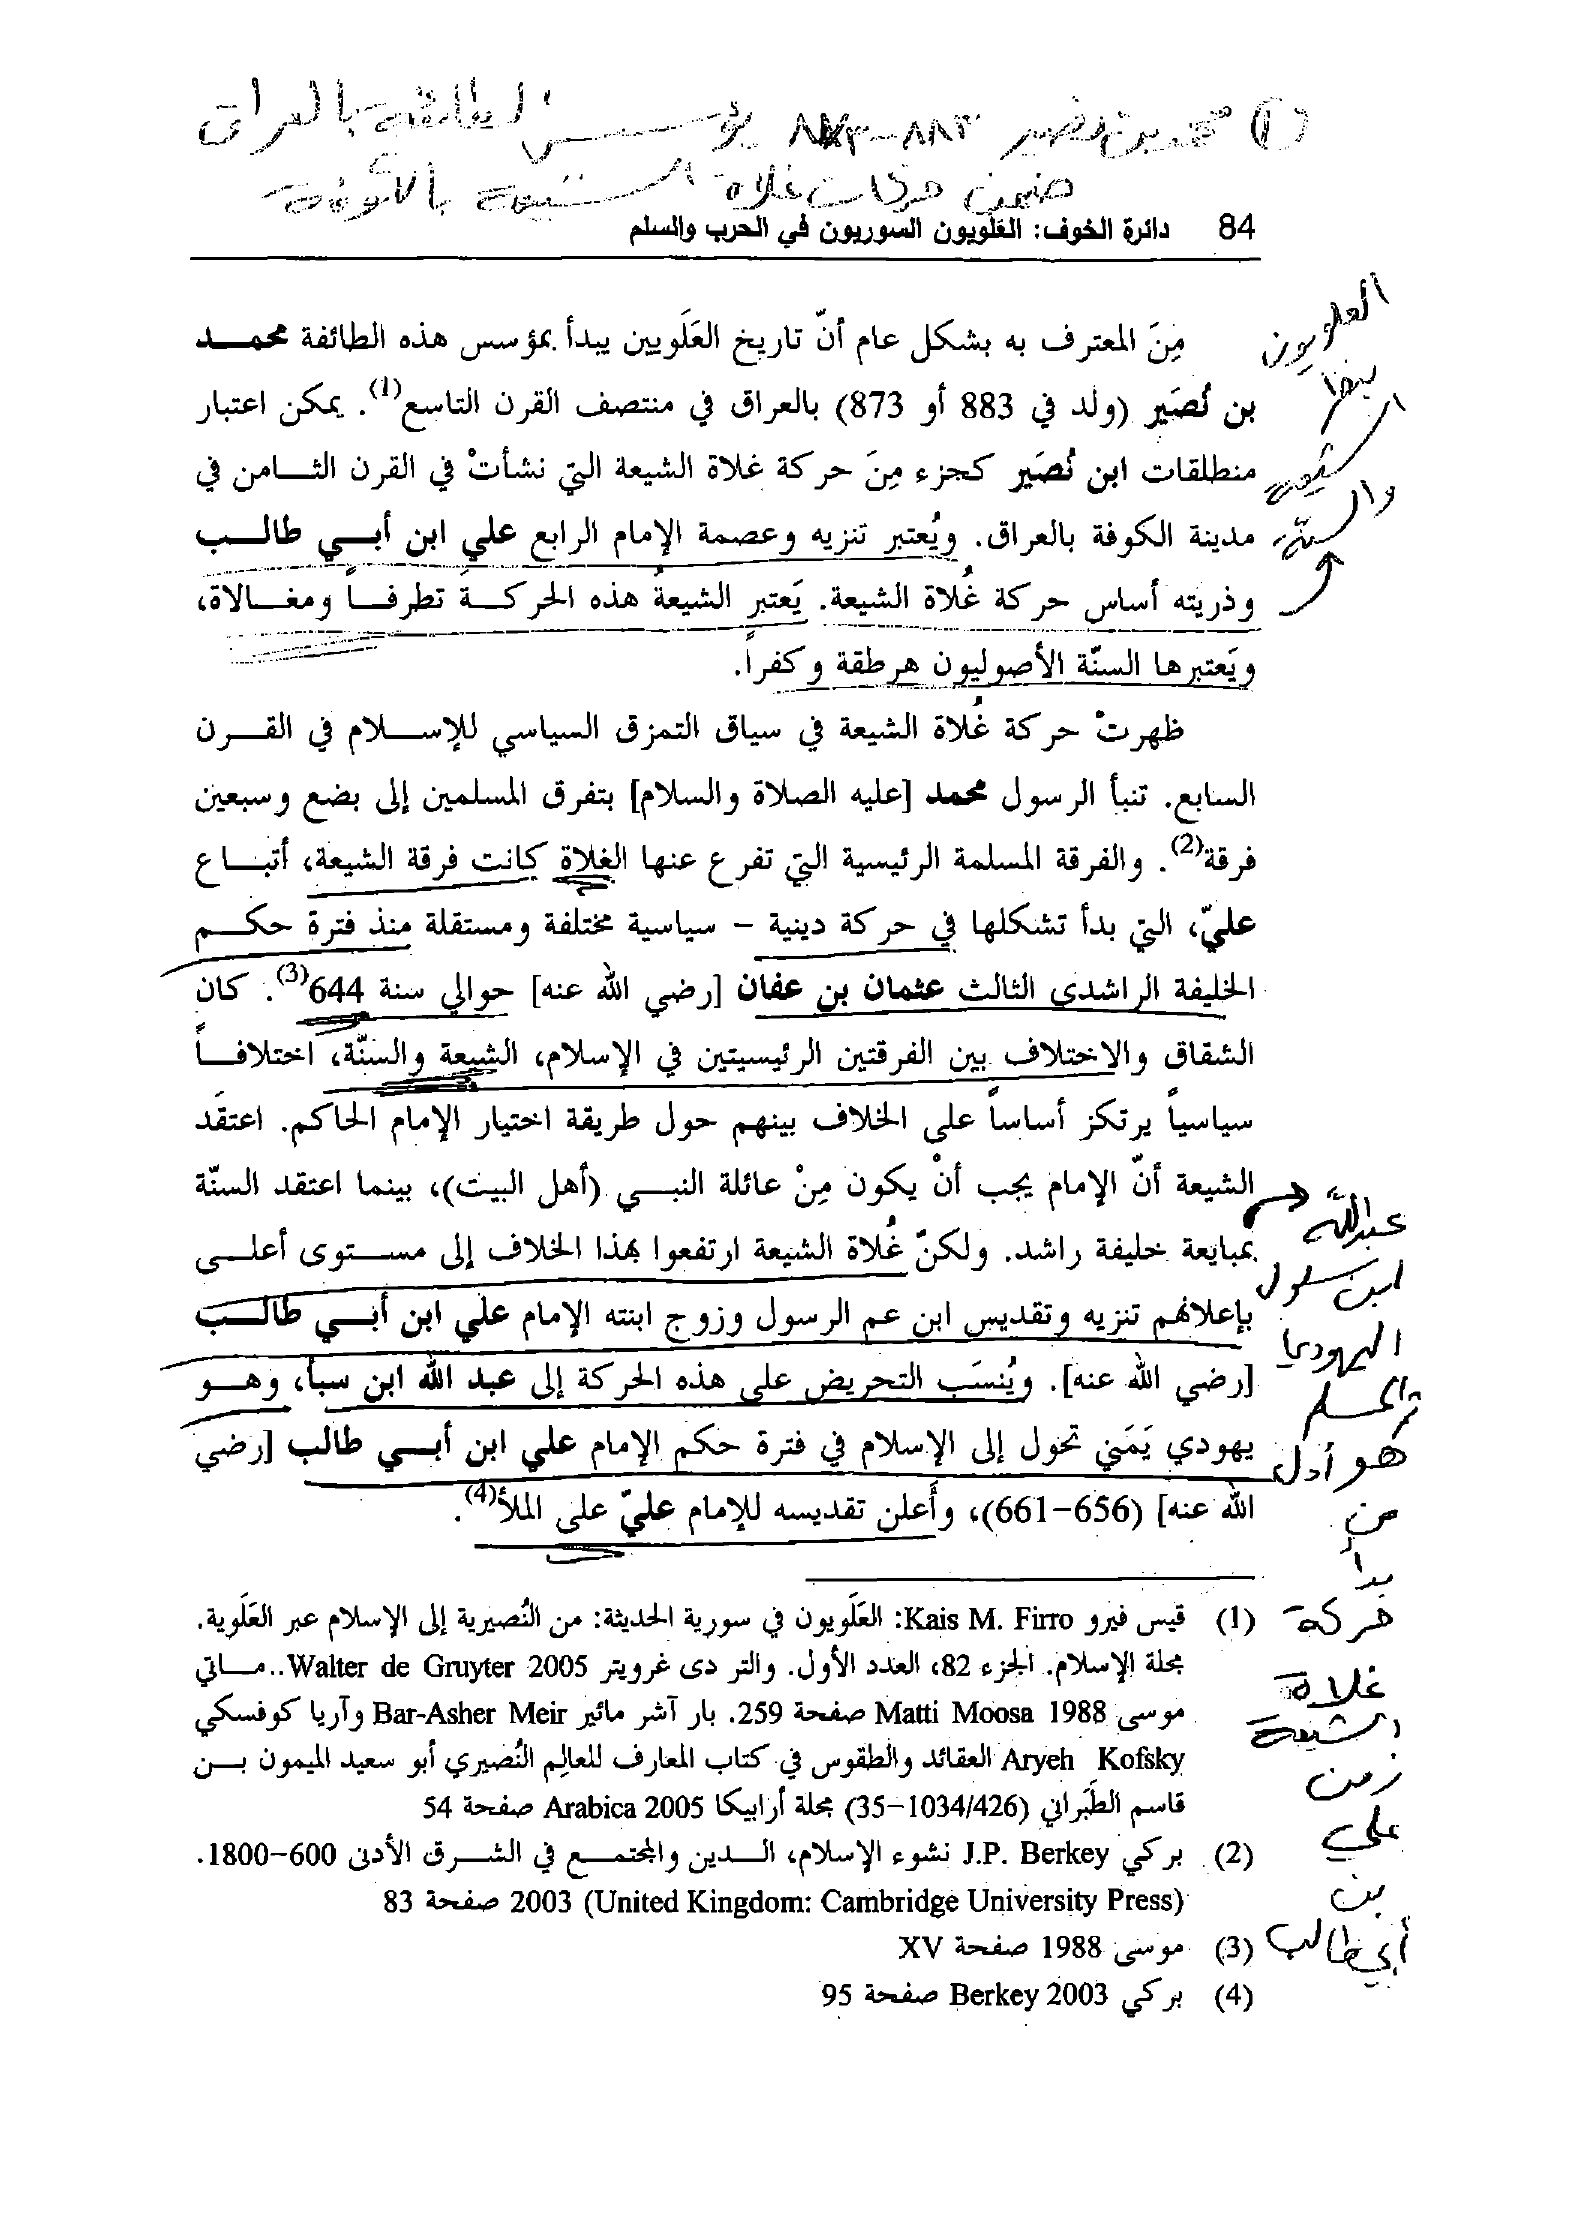 ① محمد بن نصير ٨٨٣-٨٧٣ يؤسس الطائفة بالعراق
ضمن حركات غلاة الشيعة بالكوفة
84 دائرة الخوف: العَلَويون السوريون في الحرب والسلم
مِنَ المعترف به بشكل عام أنّ تاريخ العَلَويين يبدأ بمؤسس هذه الطائفة محمد
بن نُصَير (ولد في 883 أو 873) بالعراق في منتصف القرن التاسع(1). يمكن اعتبار
منطلقات ابن نُصَير كجزء مِنَ حركة غلاة الشيعة التي نشأتْ في القرن الثامن في
مدينة الكوفة بالعراق. ويُعتبر تنزيه وعصمة الإمام الرابع علي ابن أبي طالب
وذريته أساس حركة غُلاة الشيعة. يَعتبر الشيعةُ هذه الحركةَ تطرفاً ومغالاة،
ويَعتبرها السنّة الأصوليون هرطقة وكفراً.
ظهرتْ حركة غُلاة الشيعة في سياق التمزق السياسي للإسلام في القرن
السابع. تنبأ الرسول محمد [عليه الصلاة والسلام] بتفرق المسلمين إلى بضع وسبعين
فرقة(2). والفرقة المسلمة الرئيسية التي تفرع عنها الغلاة كانت فرقة الشيعة، أتباع
عليّ، التي بدأ تشكلها في حركة دينية – سياسية مختلفة ومستقلة منذ فترة حكم
الخليفة الراشدي الثالث عثمان بن عفان [رضي الله عنه] حوالي سنة 644(3). كان
الشقاق والاختلاف بين الفرقتين الرئيسيتين في الإسلام، الشيعة والسنّة، اختلافاً
سياسياً يرتكز أساساً على الخلاف بينهم حول طريقة اختيار الإمام الحاكم. اعتقَد
الشيعة أنّ الإمام يجب أنْ يكون مِنْ عائلة النبي (أهل البيت)، بينما اعتقد السنّة
بمبايعة خليفة راشد. ولكنّ غُلاة الشيعة ارتفعوا بهذا الخلاف إلى مستوى أعلى
بإعلانهم تنزيه وتقديس ابن عم الرسول وزوج ابنته الإمام علي ابن أبي طالب
[رضي الله عنه]. ويُنسَب التحريض على هذه الحركة إلى عبد الله ابن سبأ، وهو
يهودي يَمَني تحول إلى الإسلام في فترة حكم الإمام علي ابن أبي طالب [رضي
الله عنه] (656–661)، وأَعلن تقديسه للإمام عليّ على الملأ(4).
العلويون
بنظر
الشيعة
والسنّة
عبدالله
ابن سلول
اليهودي
هو أول
من
بدأ
حركة
غلاة
الشيعة
زمن
علي
بن
أبي طالب
(1) قيس فيرو Kais M. Firro: العَلَويون في سورية الحديثة: من النُصيرية إلى الإسلام عبر العَلَوية.
مجلة الإسلام. الجزء 82، العدد الأول. والتر دى غرويتر Walter de Gruyter 2005..ماتي
موسى Matti Moosa 1988 صفحة 259. بار آشر مائير Bar-Asher Meir وآريا كوفسكي
Aryeh Kofsky العقائد والطقوس في كتاب المعارف للعالِم النُصيري أبو سعيد الميمون بن
قاسم الطَبَراني (1034/426–35) مجلة أرابيكا Arabica 2005 صفحة 54
(2) بركي J.P. Berkey نشوء الإسلام، الدين والمجتمع في الشرق الأدنى 600–1800.
(United Kingdom: Cambridge University Press) 2003 صفحة 83
(3) موسى 1988 صفحة XV
(4) بركي Berkey 2003 صفحة 95